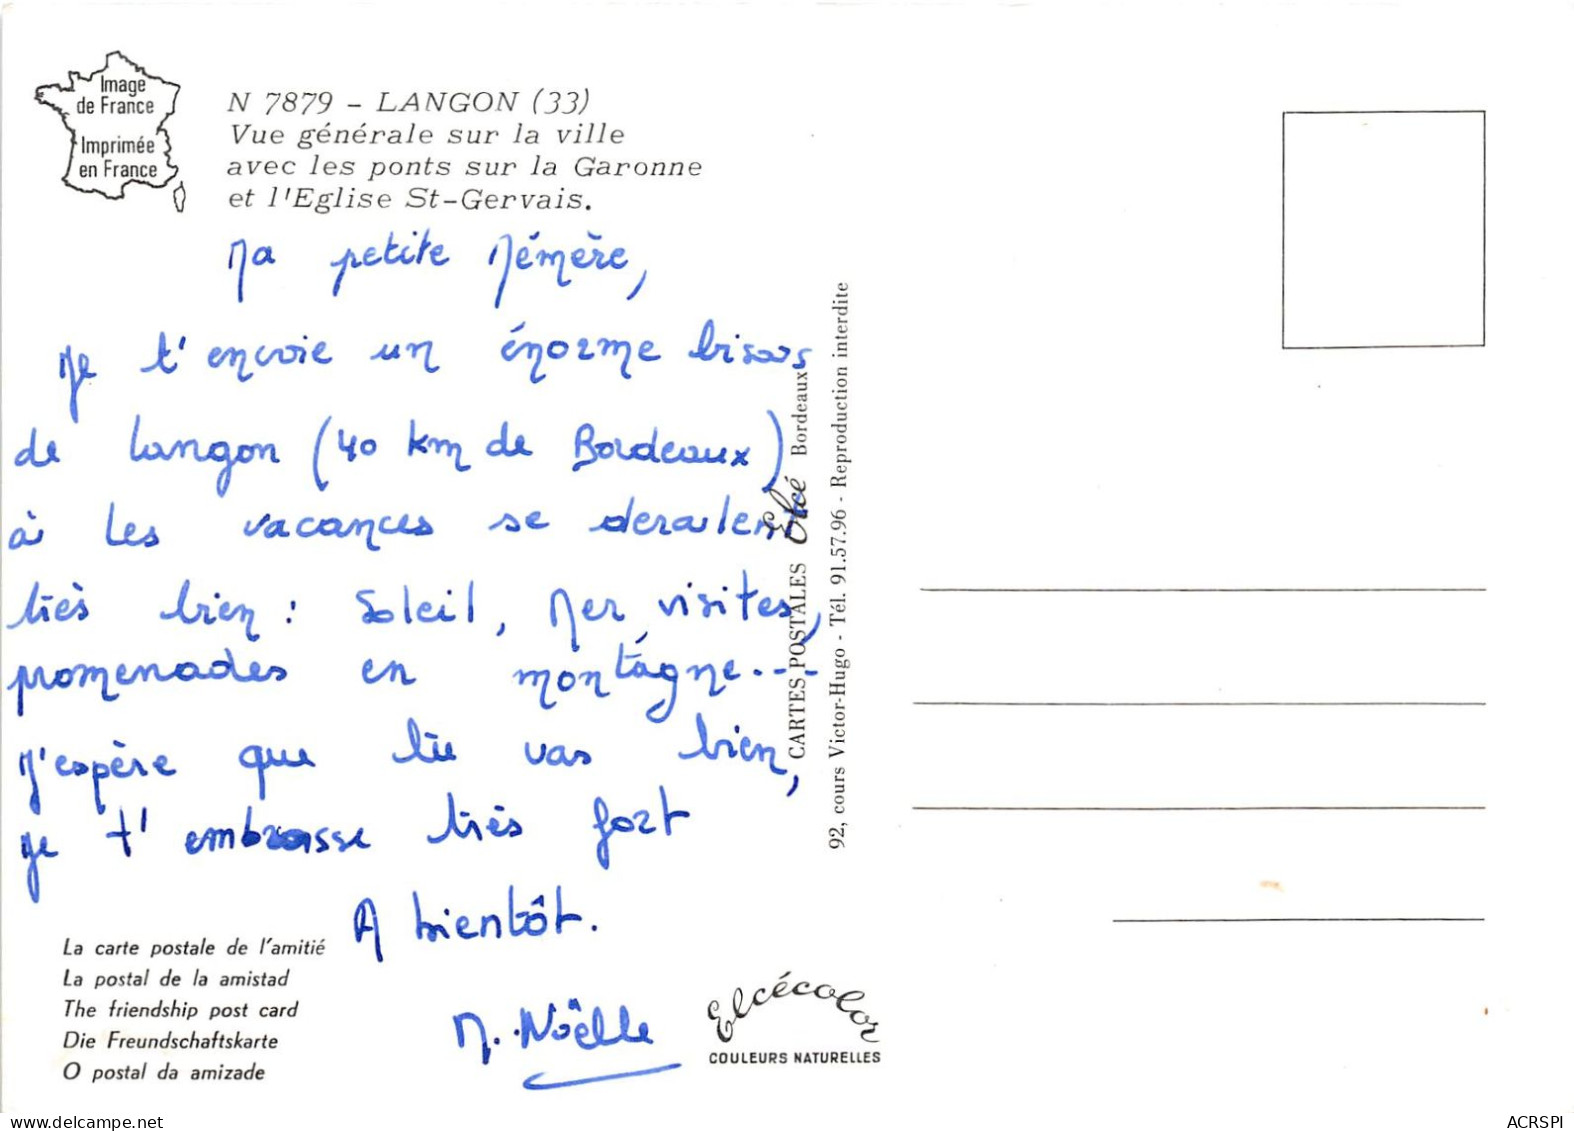 Image
de France
Imprimée
en France
N 7879 - LANGON (33)
Vue générale sur la ville
avec les ponts sur la Garonne
et l'Eglise St-Gervais.
Ma petite Mémère,
Je t'envoie un énorme bisous
de Langon (40 km de Bordeaux)
où les vacances se déroulent
très bien : Soleil, Mer, visites,
promenades en montagne...
J'espère que tu vas bien,
je t'embrasse très fort
A bientôt.
M. Noëlle
La carte postale de l'amitié
La postal de la amistad
The friendship post card
Die Freundschaftskarte
O postal da amizade
Elcécolor
COULEURS NATURELLES
CARTES POSTALES Elcé Bordeaux
92, cours Victor-Hugo - Tél. 91.57.96 - Reproduction interdite
www.delcampe.net
ACRSPI